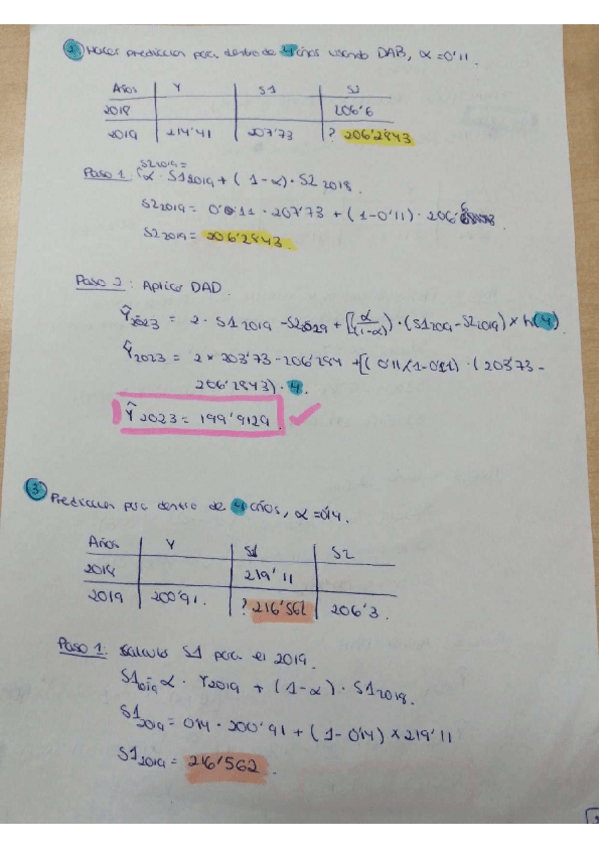 2. Hacer prediccion para dentro de 4 años usando DAB, α=0'11.
Años Y S1 S2
2018 206'6
2019 214'41 207'73 ? 206'2843
Paso 1: S2 2019 =
α · S1 2019 + (1-α) · S2 2018.
S2 2019 = 0'11 · 207'73 + (1-0'11) · 206'
S2 2019 = 206'2843
Paso 2: Aplicar DAD.
Ŷ 2023 = 2 · S1 2019 - S2 2019 + [(α/(1-α)) · (S1 2019 - S2 2019) × h(4)
Ŷ 2023 = 2 × 203'73 - 206'284 + [(0'11/(1-0'11) · (203'73 -
206'2843) · 4.
Ŷ 2023 = 199'9129 ✓
3. Prediccion para dentro de 4 años, α=0'14.
Años Y S1 S2
2018 219'11
2019 200'91. ? 216'562 206'3.
Paso 1: Calculo S1 para el 2019.
S1 2019 = α · Y2019 + (1-α) · S1 2018.
S1 2019 = 0'14 · 200'91 + (1-0'14) × 219'11
S1 2019 = 216'562.